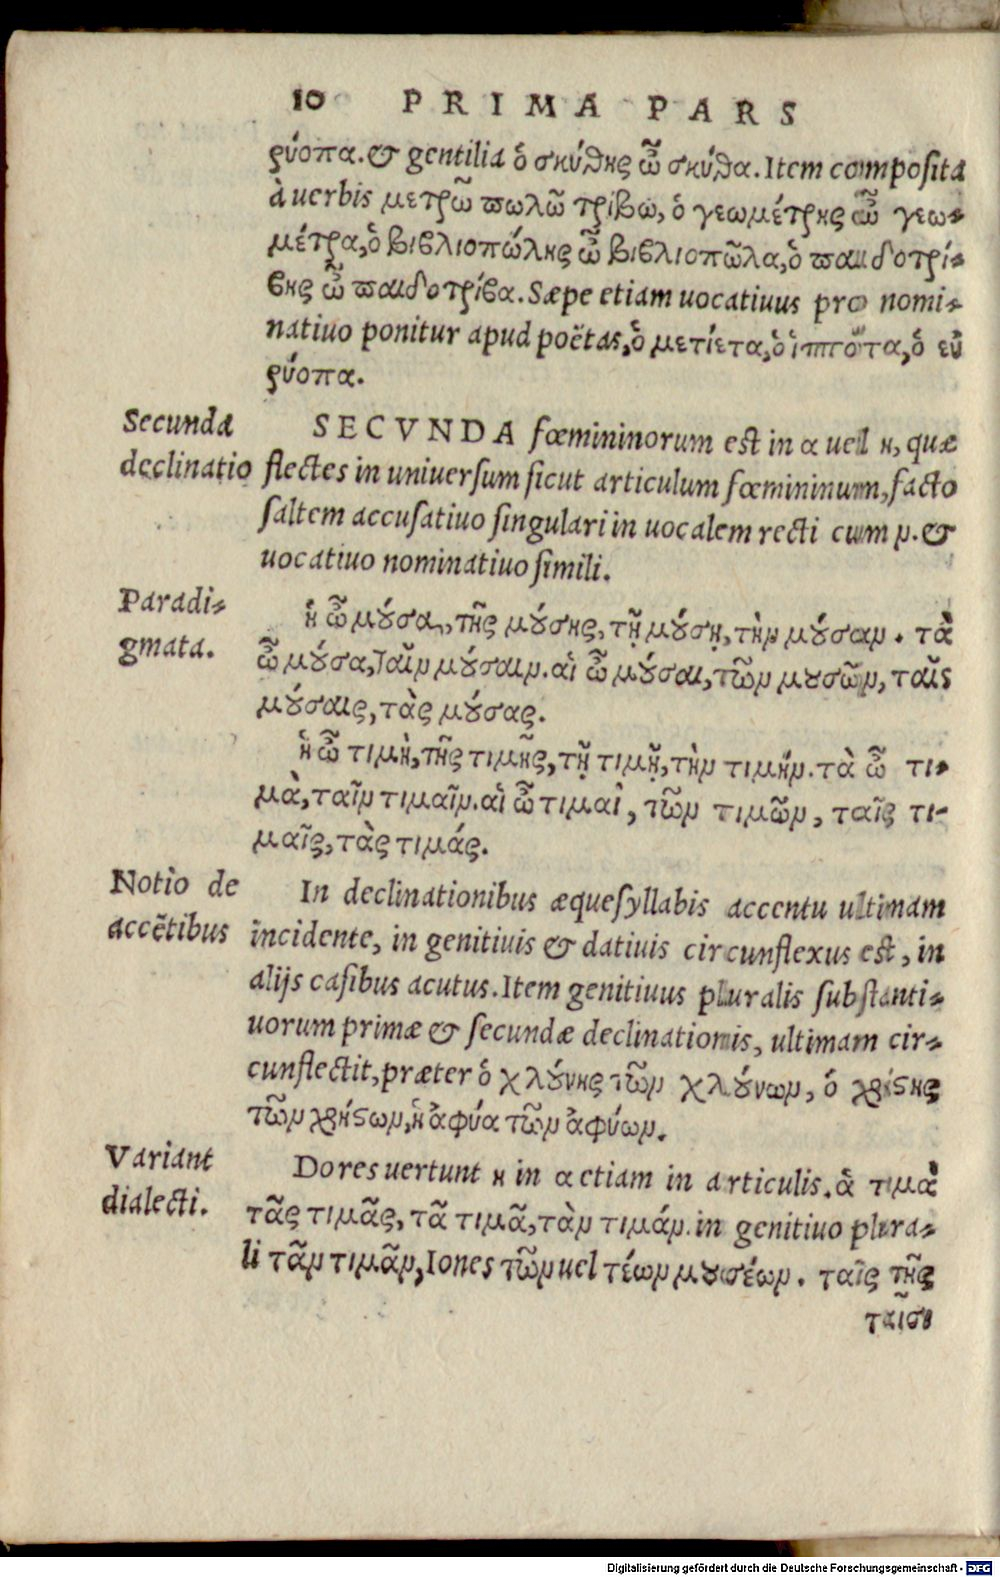 10 PRIMA PARS
ρύοπα. & gentilia ὁ σκύθης ὦ σκύθα. Item composita
à uerbis μετρῶ πωλῶ τρίβω, ὁ γεωμέτρης ὦ γεω-
μέτρα, ὁ βιβλιοπώλης ὦ βιβλιοπῶλα, ὁ παιδοτρί-
βης ὦ παιδοτρίβα. Sæpe etiam uocatiuus pro nomi-
natiuo ponitur apud poëtas, ὁ μετίετα, ὁ ἱππότα, ὁ εὐ
ρύοπα.
Secunda
declinatio
SECVNDA fœmininorum est in α uel η, quæ
flectes in uniuersum sicut articulum fœmininum, facto
saltem accusatiuo singulari in uocalem recti cum ν. &
uocatiuo nominatiuo simili.
Paradi-
gmata.
ἡ ὦ μούσα, τῆς μούσης, τῇ μούσῃ, τὴν μούσαν. τὰ
ὦ μούσα, ταῖν μούσαιν. αἱ ὦ μούσαι, τῶν μουσῶν, ταῖς
μούσαις, τὰς μούσας.
ἡ ὦ τιμὴ, τῆς τιμῆς, τῇ τιμῇ, τὴν τιμήν. τὰ ὦ τι-
μὰ, ταῖν τιμαῖν. αἱ ὦ τιμαὶ, τῶν τιμῶν, ταῖς τι-
μαῖς, τὰς τιμάς.
Notio de
accẽtibus
In declinationibus æquesyllabis accentu ultimam
incidente, in genitiuis & datiuis circunflexus est, in
alijs casibus acutus. Item genitiuus pluralis substanti-
uorum primæ & secundæ declinationis, ultimam cir-
cunflectit, præter ὁ χλούνης τῶν χλούνων, ὁ χρήστης
τῶν χρήστων, ἡ ἀφύα τῶν ἀφύων.
Variant
dialecti.
Dores uertunt η in α etiam in articulis. ἁ τιμὰ
τᾶς τιμᾶς, τᾷ τιμᾷ, τὰν τιμάν. in genitiuo plura-
li τᾶν τιμᾶν, Iones τῶν uel τέων μουσέων. ταῖς τῇς
ταῖσι
Digitalisierung gefördert durch die Deutsche Forschungsgemeinschaft - DFG